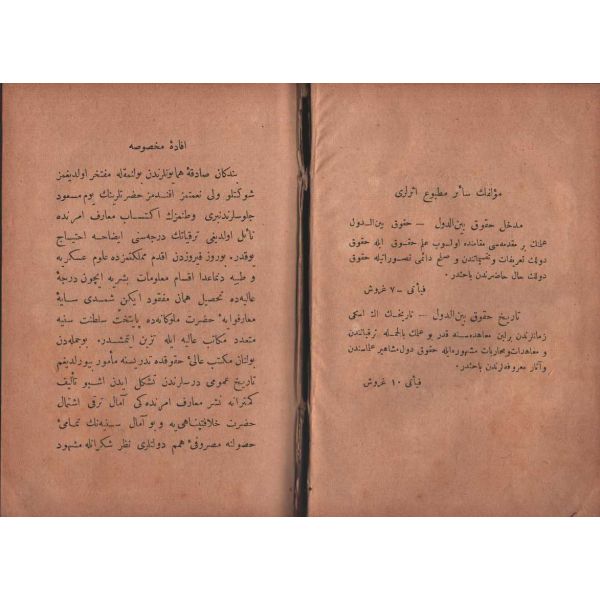 مؤلفك سائر مطبوع اثرلری
مدخل حقوق بین‌الدول — حقوق بین‌الدول
علمنك بر مقدمه‌سی مقامنده اولدوب علم حقوق ایله حقوق
دولك تعریفات و تقسیماتندن و صلح دائمی تصوراتیله حقوق
دولك حال حاضرندن باحثدر.
فیأتی ۷ غروش
تاریخ حقوق بین‌الدول — تاریخك اك اسكی
زمانلرندن برلین معاهده‌سنه قدر بو علمك بالجمله ترقیاتندن
و معاهدات و محاربات مشهوره ایله حقوق دول مشاهیر علماسندن
و آثار معروفه‌لرندن باحثدر.
فیأتی ۱۰ غروش
افادهٔ مخصوصه
بندكان صادقهٔ همایونلرندن بولنمقله مفتخر اولدیغمز
شوكتلو ولی نعمتمز افندمز حضرتلرینك یوم مسعود
جلوسلرندنبری وطنمزك اكتساب معارف امرنده
نائل اولدیغی ترقیاتك درجه‌سنی ایضاحه احتیاج
یوقدر. بوروز فیروزدن اقدم مملكتمزده علوم عسكریه
و طبیه دنماعدا اقسام معلومات بشریه ایچون درجهٔ
عالیه‌ده تحصیل همان مفقود ایكن شمدی سایهٔ
معارفوایهٔ حضرت ملوكانه‌ده پایتخت سلطنت سنیه
متعدد مكاتب عالیه ایله تزین ایتمشدر. بوجمله‌دن
بولنان مكتب عالیٔ حقوقده تدریسنه مأمور بیورلدیغم
تاریخ عمومی درسلرندن تشكل ایدن اشبو تألیف
كمترانه نشر معارف امرنده‌كی آمال ترقی اشتمال
حضرت خلافتپناهی‌یه و بو آمال سنیه‌نك تمامئ
حصولنه مصروفئ همم دولتلری نظر شكرانله مشهود